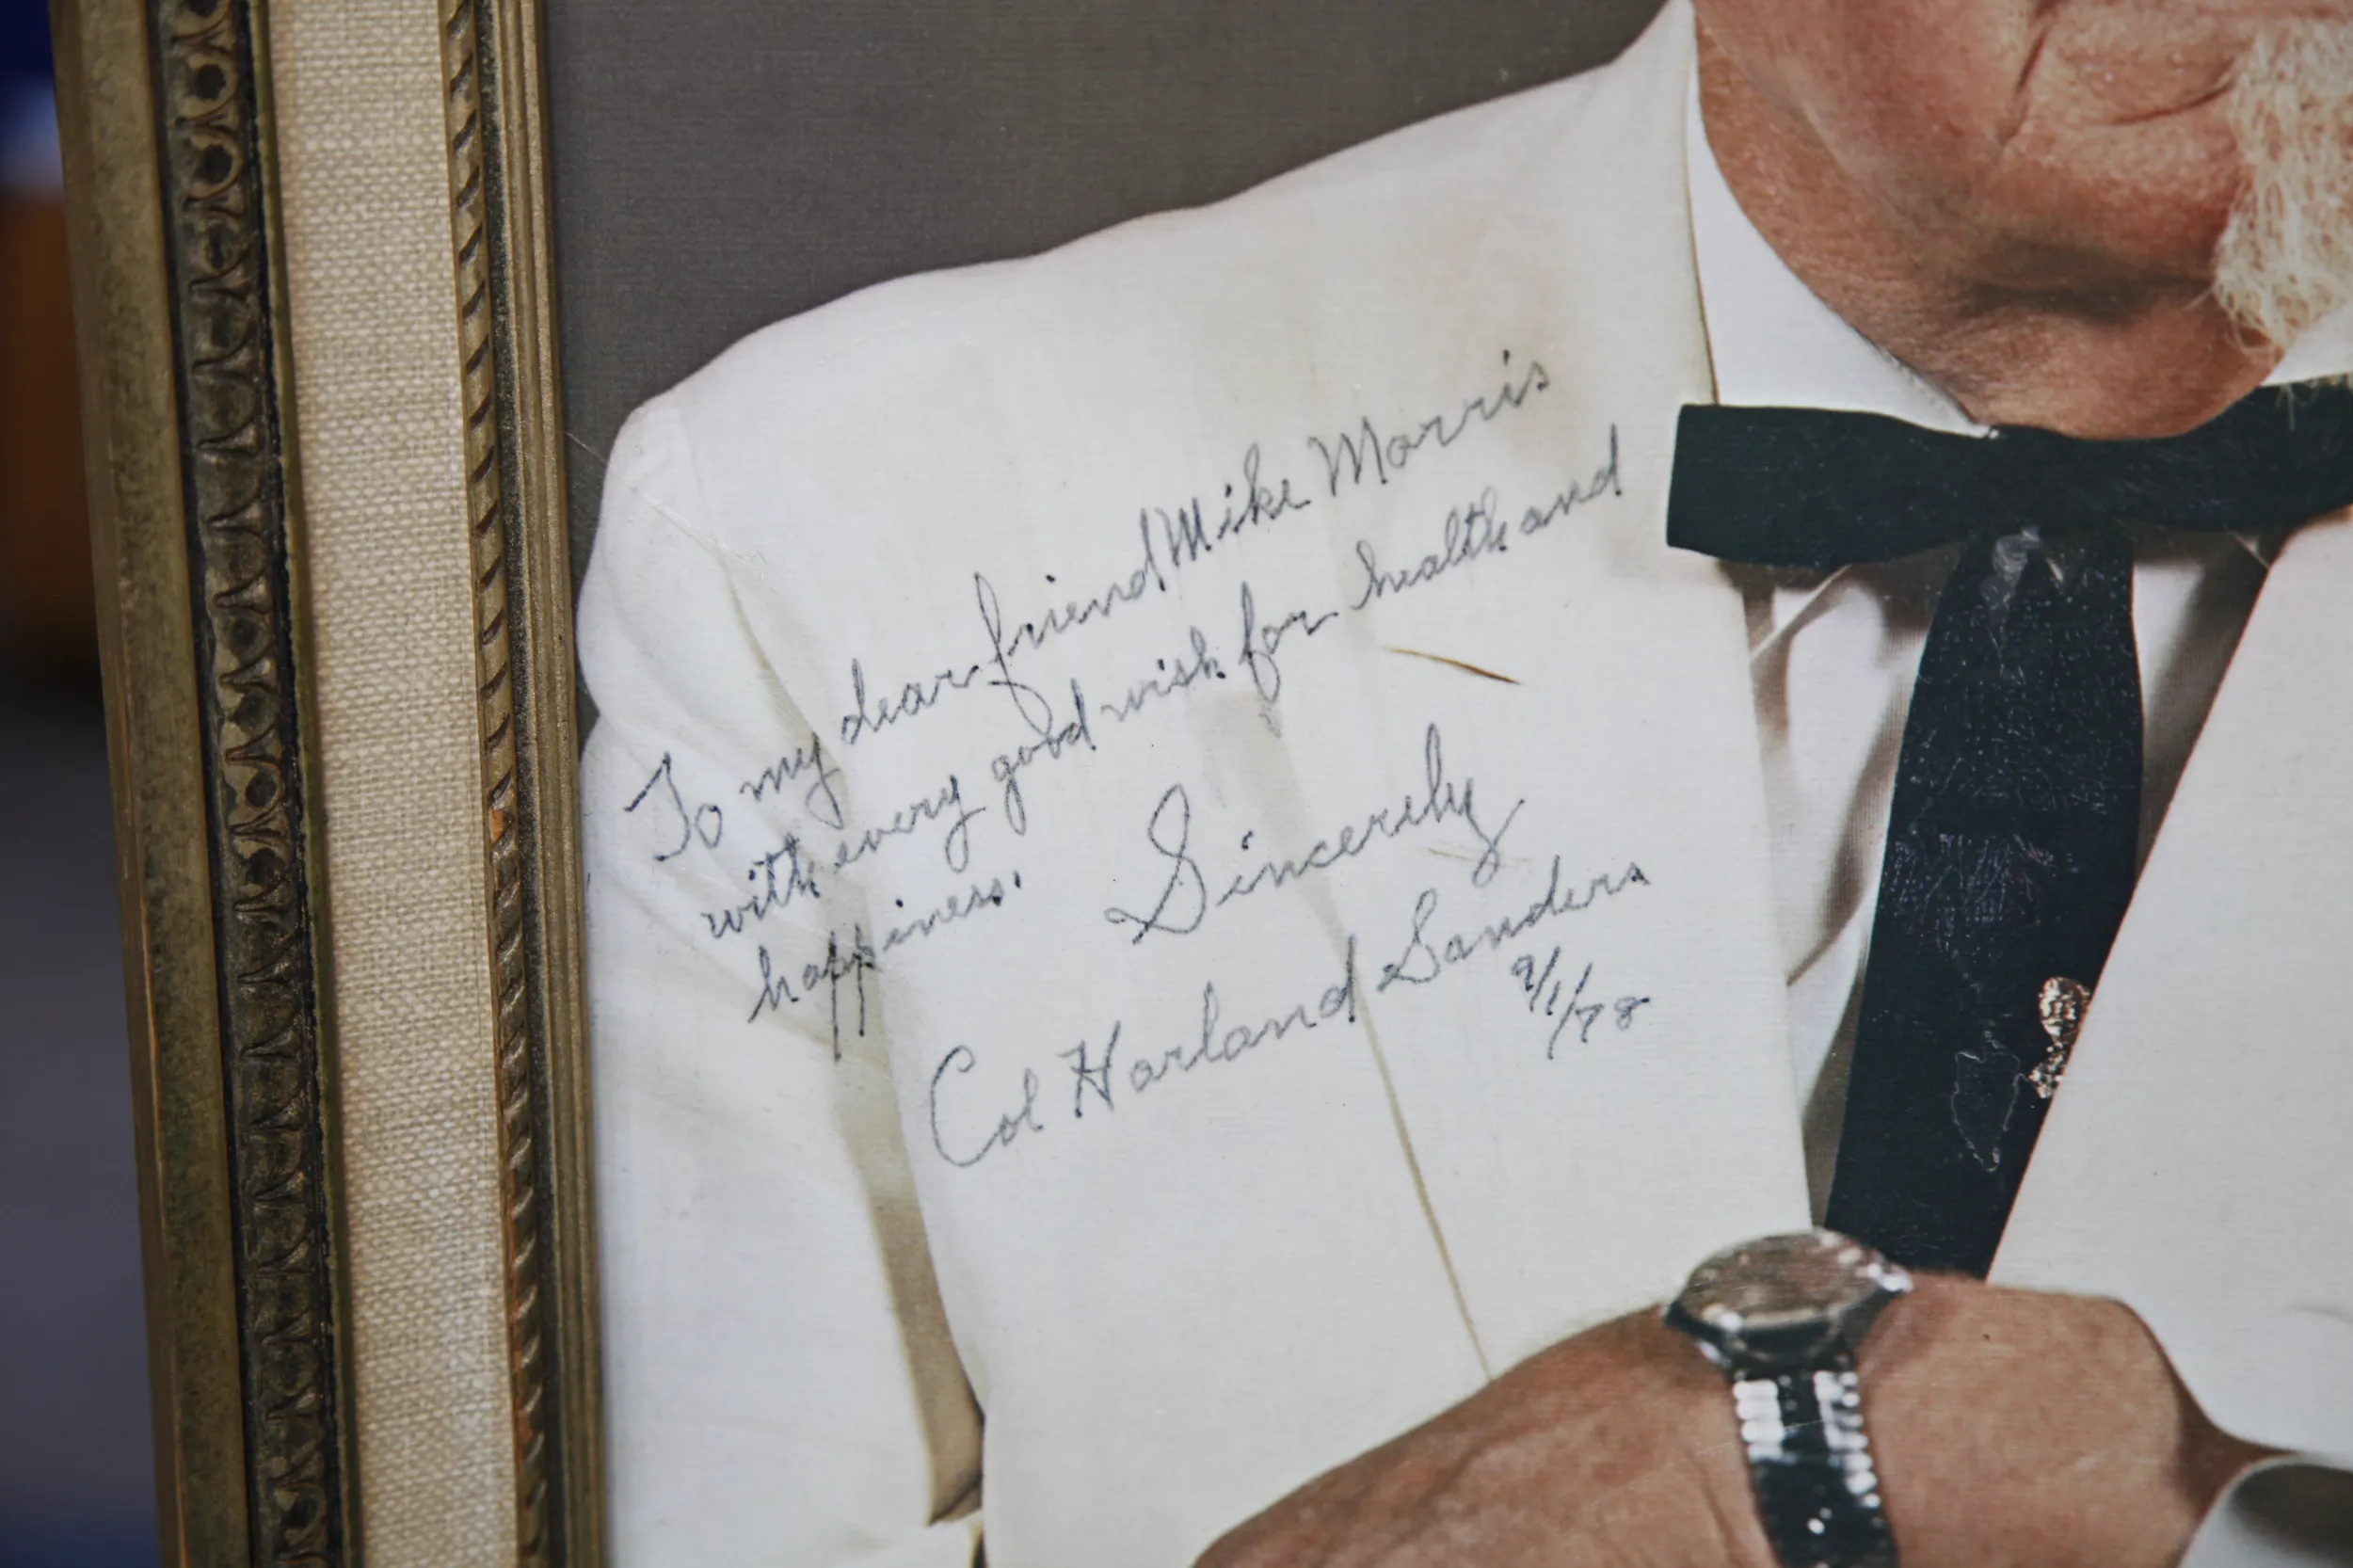 To my dear friend Mike Morris
with every good wish for health and
happiness.
Sincerely
Col Harland Sanders
9/1/78